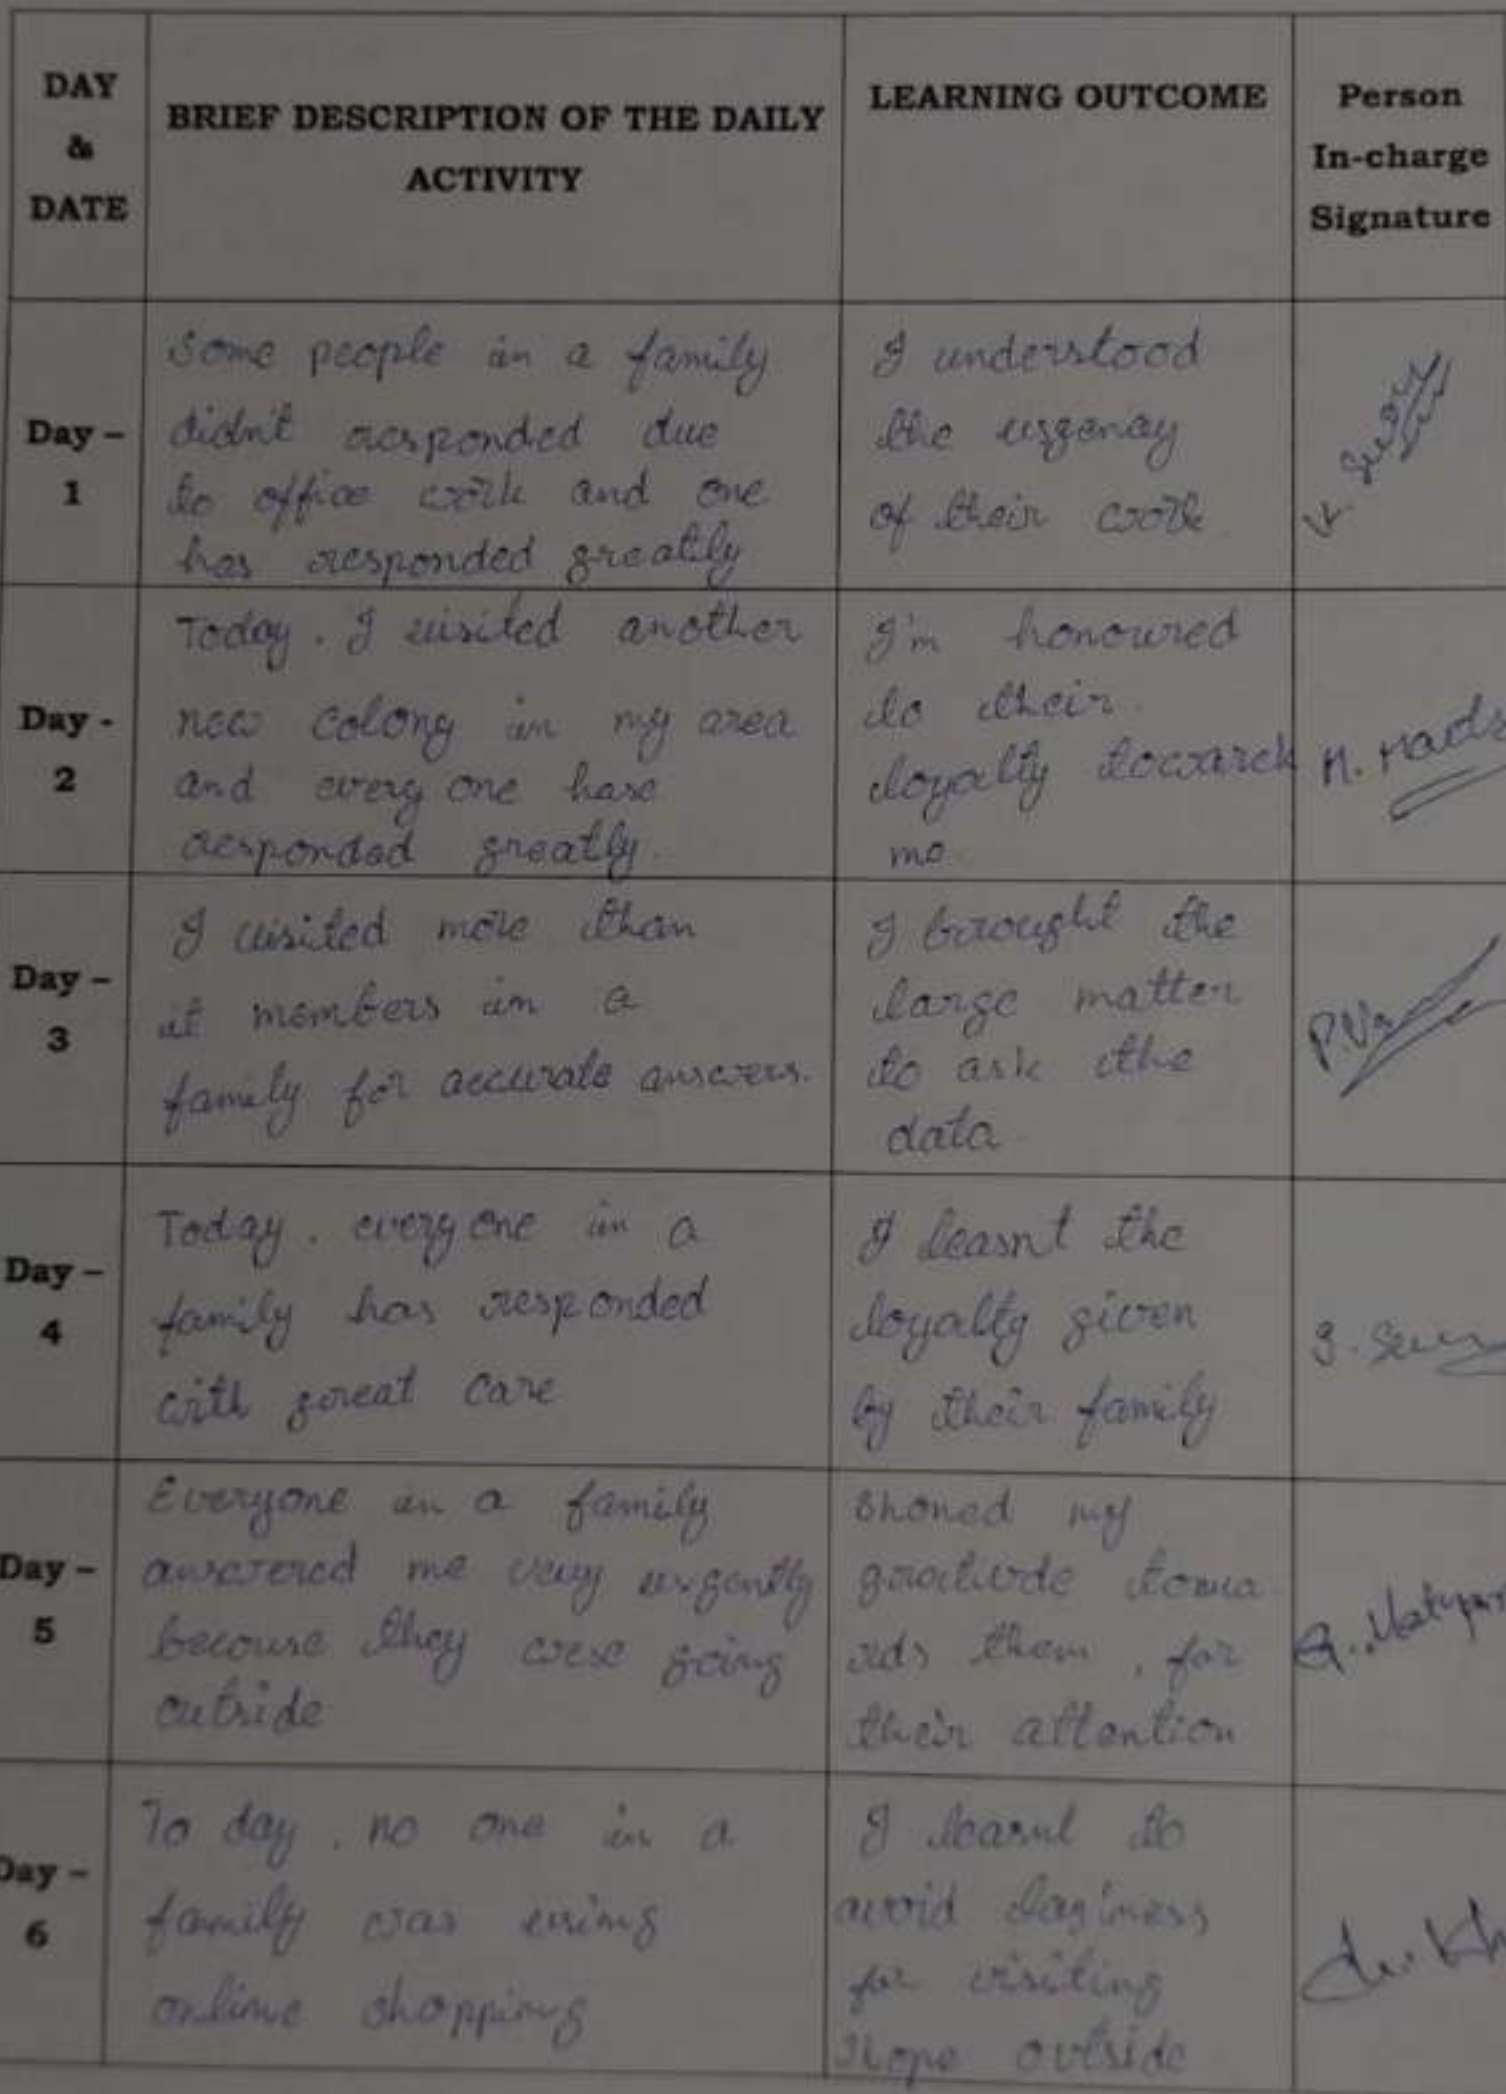 DAY
&
DATE
BRIEF DESCRIPTION OF THE DAILY
ACTIVITY
LEARNING OUTCOME
Person
In-charge
Signature
Day –
1
Some people in a family
didn't responded due
to office work and one
has responded greatly
I understood
the urgency
of their work
Day -
2
Today. I visited another
new colony in my area
and every one have
responded greatly.
I'm honoured
to their
loyalty towards
me
Day –
3
I visited more than
at members in a
family for accurate answers.
I brought the
large matter
to ask the
data
Day –
4
Today. every one in a
family has responded
with great care
I learnt the
loyalty given
by their family
Day –
5
Everyone in a family
answered me very urgently
because they were going
outside
Showed my
gratitude towa
rds them, for
their attention
Day –
6
To day. no one in a
family was using
online shopping
I learnt to
avoid laziness
for visiting
outside